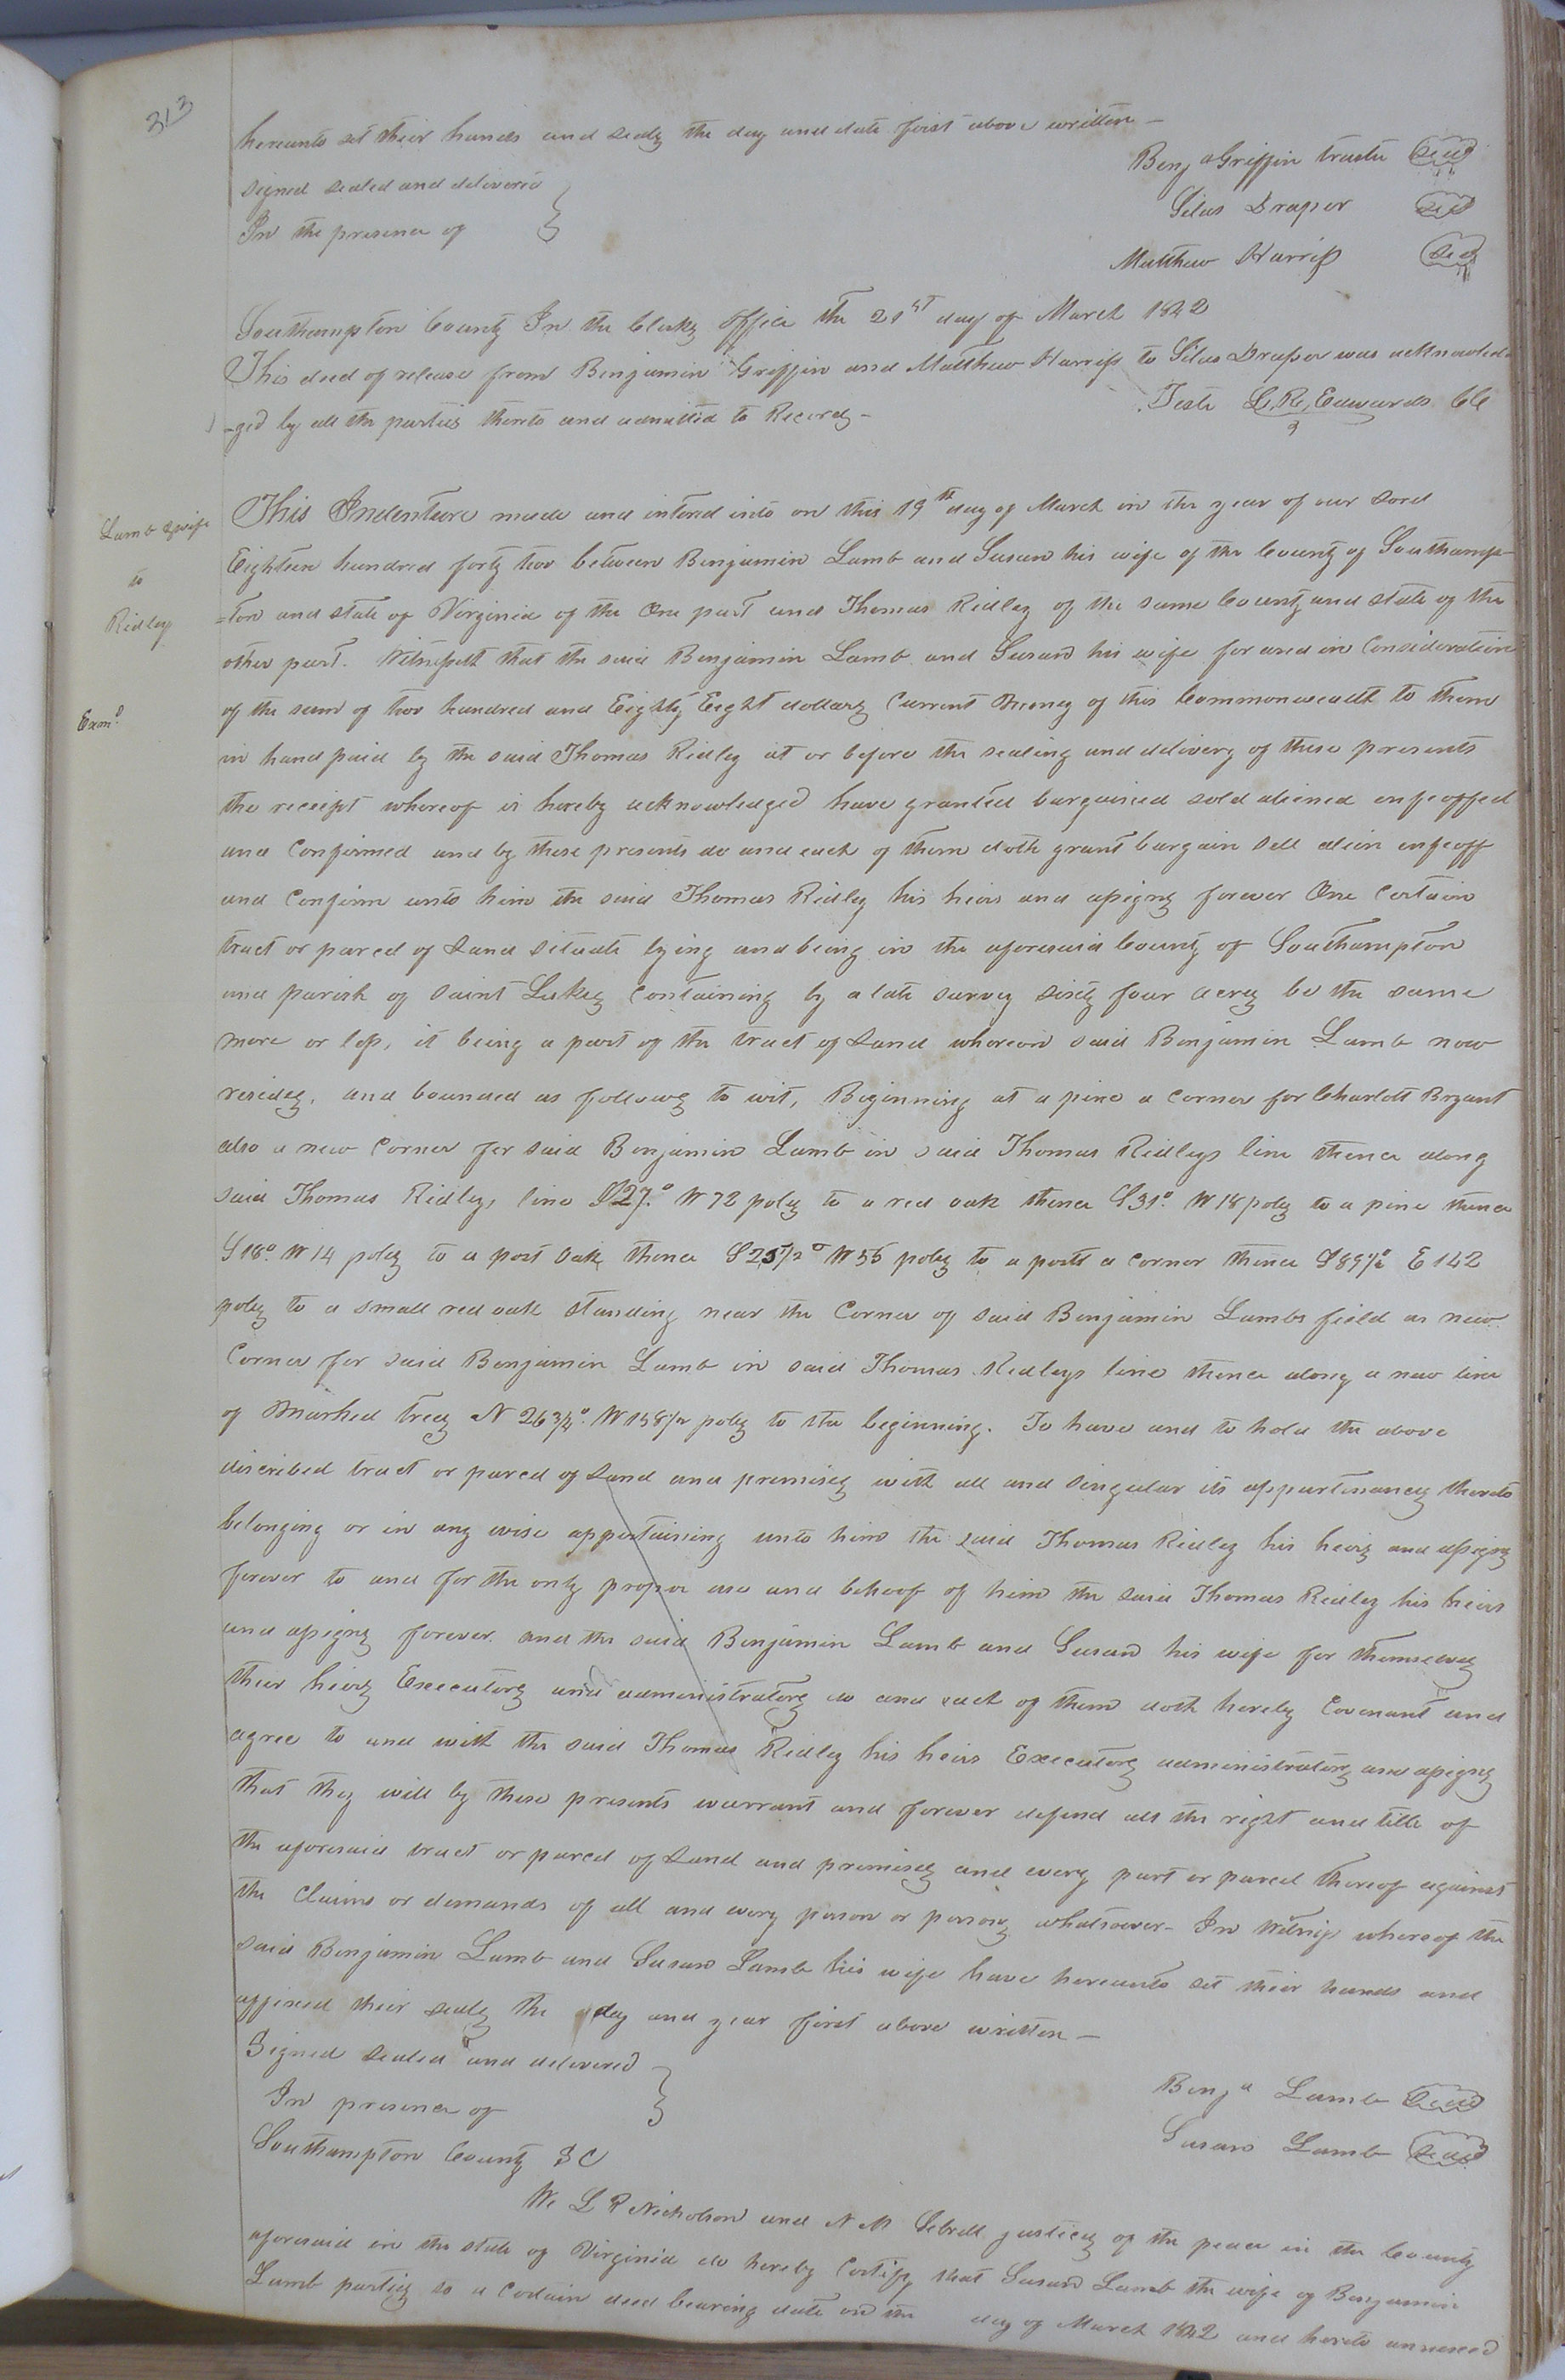 313
hereunto set their hands and seals the day and date first above written –
signed sealed and delivered
In the presence of
Benja Griffin trustee seal
Silas Draper seal
Matthew Harriss seal
Southampton County In the Clerks office the 21st day of March 1842
This deed of release from Benjamin Griffin and Matthew Harriss to Silas Draper was acknowled-
-ged by all the parties thereto and admitted to Record –
Teste L. R. Edwards CC
Lamb & wife
to
Ridley
Exmd
This Indenture made and intered into on this 19th day of March in the year of our Lord
Eighteen hundred forty two between Benjamin Lamb and Susan his wife of the County of Southamp-
=ton and state of Virginia of the One part and Thomas Ridley of the same County and state of the
other part. Witnesseth that the said Benjamin Lamb and Susan his wife for and in Consideration
of the sum of two hundred and Eighty Eight dollars Current Money of this Commonwealth to them
in hand paid by the said Thomas Ridley at or before the sealing and delivery of these presents
the receipt whereof is hereby acknowledged have granted bargained sold aliened enfeoffed
and Confirmed and by these presents do and each of them doth grant bargain sell alein enfeoff
and Confirm unto him the said Thomas Ridley his heirs and assigns forever One Certain
tract or parcel of Land situate lying and being in the aforesaid County of Southampton
and parish of Saint Lukes Containing by a late survey sixty four acres be the same
more or less, it being a part of the tract of Land whereon said Benjamin Lamb now
resides, and bounded as follows to wit, Beginning at a pine a corner for Charlott Bryant
also a new Corner for said Benjamin Lamb in said Thomas Ridleys line thence along
said Thomas Ridleys line S27° W 72 poles to a red oak thence S31° W 18 poles to a pine thence
S18° W 14 poles to a post Oak thence S25½° W 56 poles to a post a corner thence S89½° E 142
poles to a small red oak standing near the Corner of said Benjamin Lambs field as new
Corner for said Benjamin Lamb in said Thomas Ridleys line thence along a new line
of Marked trees N 26¾° W 158½ poles to the beginning. To have and to hold the above
discribed tract or parcel of Land and premises with all and singular its appurtenances thereto
belonging or in any wise appertaining unto him the said Thomas Ridley his heirs and assigns
forever to and for the only proper use and behoof of him the said Thomas Ridley his heirs
and assigns forever. and the said Benjamin Lamb and Susan his wife for themselves
their heirs Executors and administrators do and each of them doth hereby Covenant and
agree to and with the said Thomas Ridley his heirs Executors administrators and assigns
that they will by these presents warrant and forever defend all the right and title of
the aforesaid tract or parcel of Land and premises and every part or parcel thereof against
the Claims or demands of all and every person or persons whatsoever – In Witness whereof the
said Benjamin Lamb and Susan Lamb his wife have hereunto set their hands and
affixed their seals the day and year first above written –
Signed Sealed and delivered
In presence of
Benja Lamb Seal
Susan Lamb Seal
Southampton County SC
We L R Nicholson and N M Sebrell justices of the peace in the County
aforesaid in the state of Virginia do hereby Certify that Susan Lamb the wife of Benjamin
Lamb parties to a Certain deed bearing date on the day of March 1842 and hereto annexed